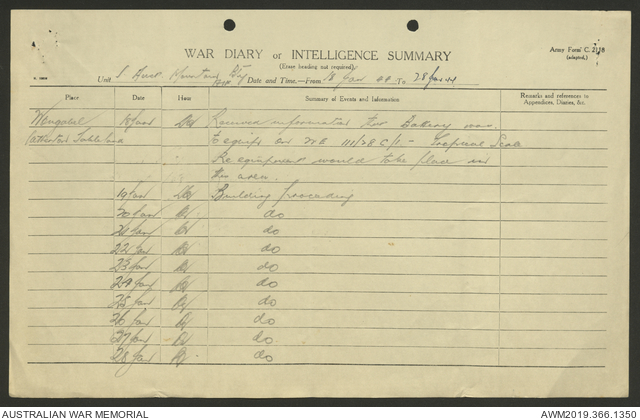 WAR DIARY OR INTELLIGENCE SUMMARY
Army Form C. 2118
(adapted.)
(Erase heading not required).
Unit 1 Aust Mountain Bty Date and Time.—From 18 Jan 44 To 28 Jan 44
Place Date Hour Summary of Events and Information Remarks and references to Appendices, Diaries, &c.
Wongabel 18 Jan Received information that Battery was
Atherton Tableland to equip on WE III/28 C/1 - Tropical Scale
Re equipment would take place in
this area.
19 Jan Building proceeding
20 Jan do
21 Jan do
22 Jan do
23 Jan do
24 Jan do
25 Jan do
26 Jan do
27 Jan do
28 Jan do
AUSTRALIAN WAR MEMORIAL
AWM2019.366.1350